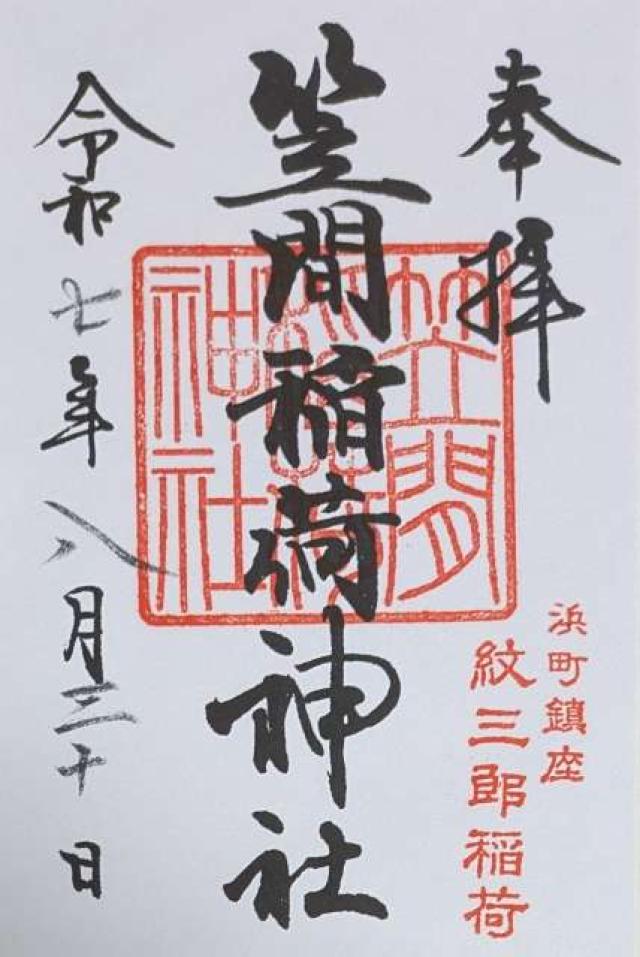 奉拝
浜町鎮座
紋三郎稲荷
笠間稲荷神社
笠間稲荷神社
令和七年八月三十日